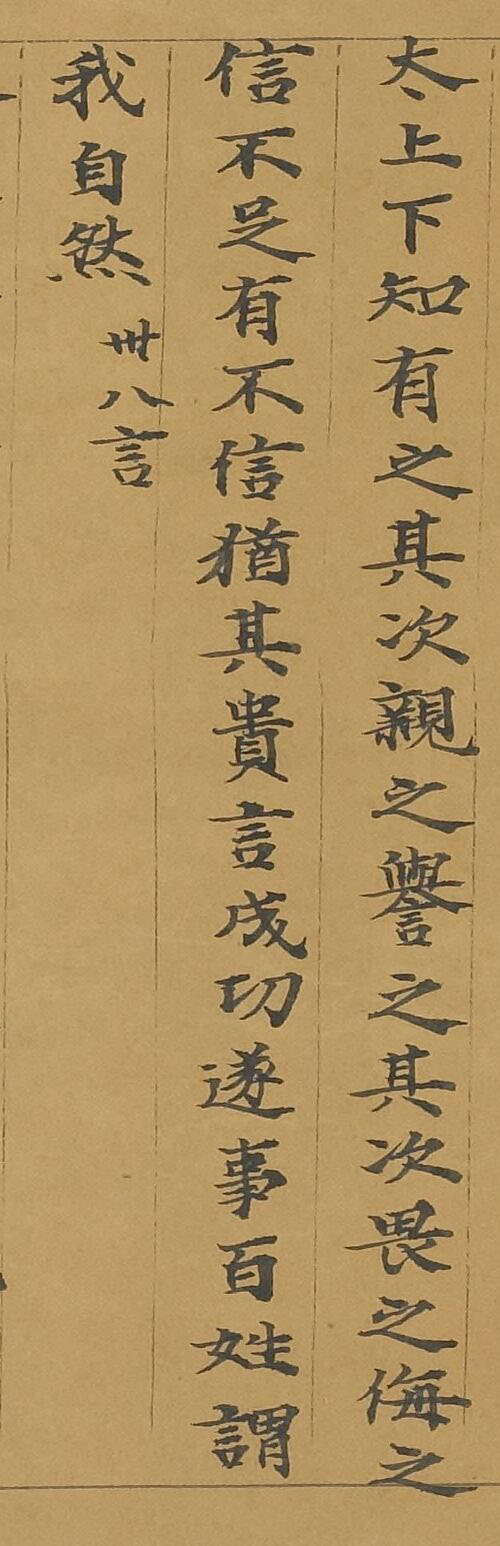 太上下知有之其次親之譽之其次畏之侮之
信不足有不信猶其貴言成功遂事百姓謂
我自然 卌八言